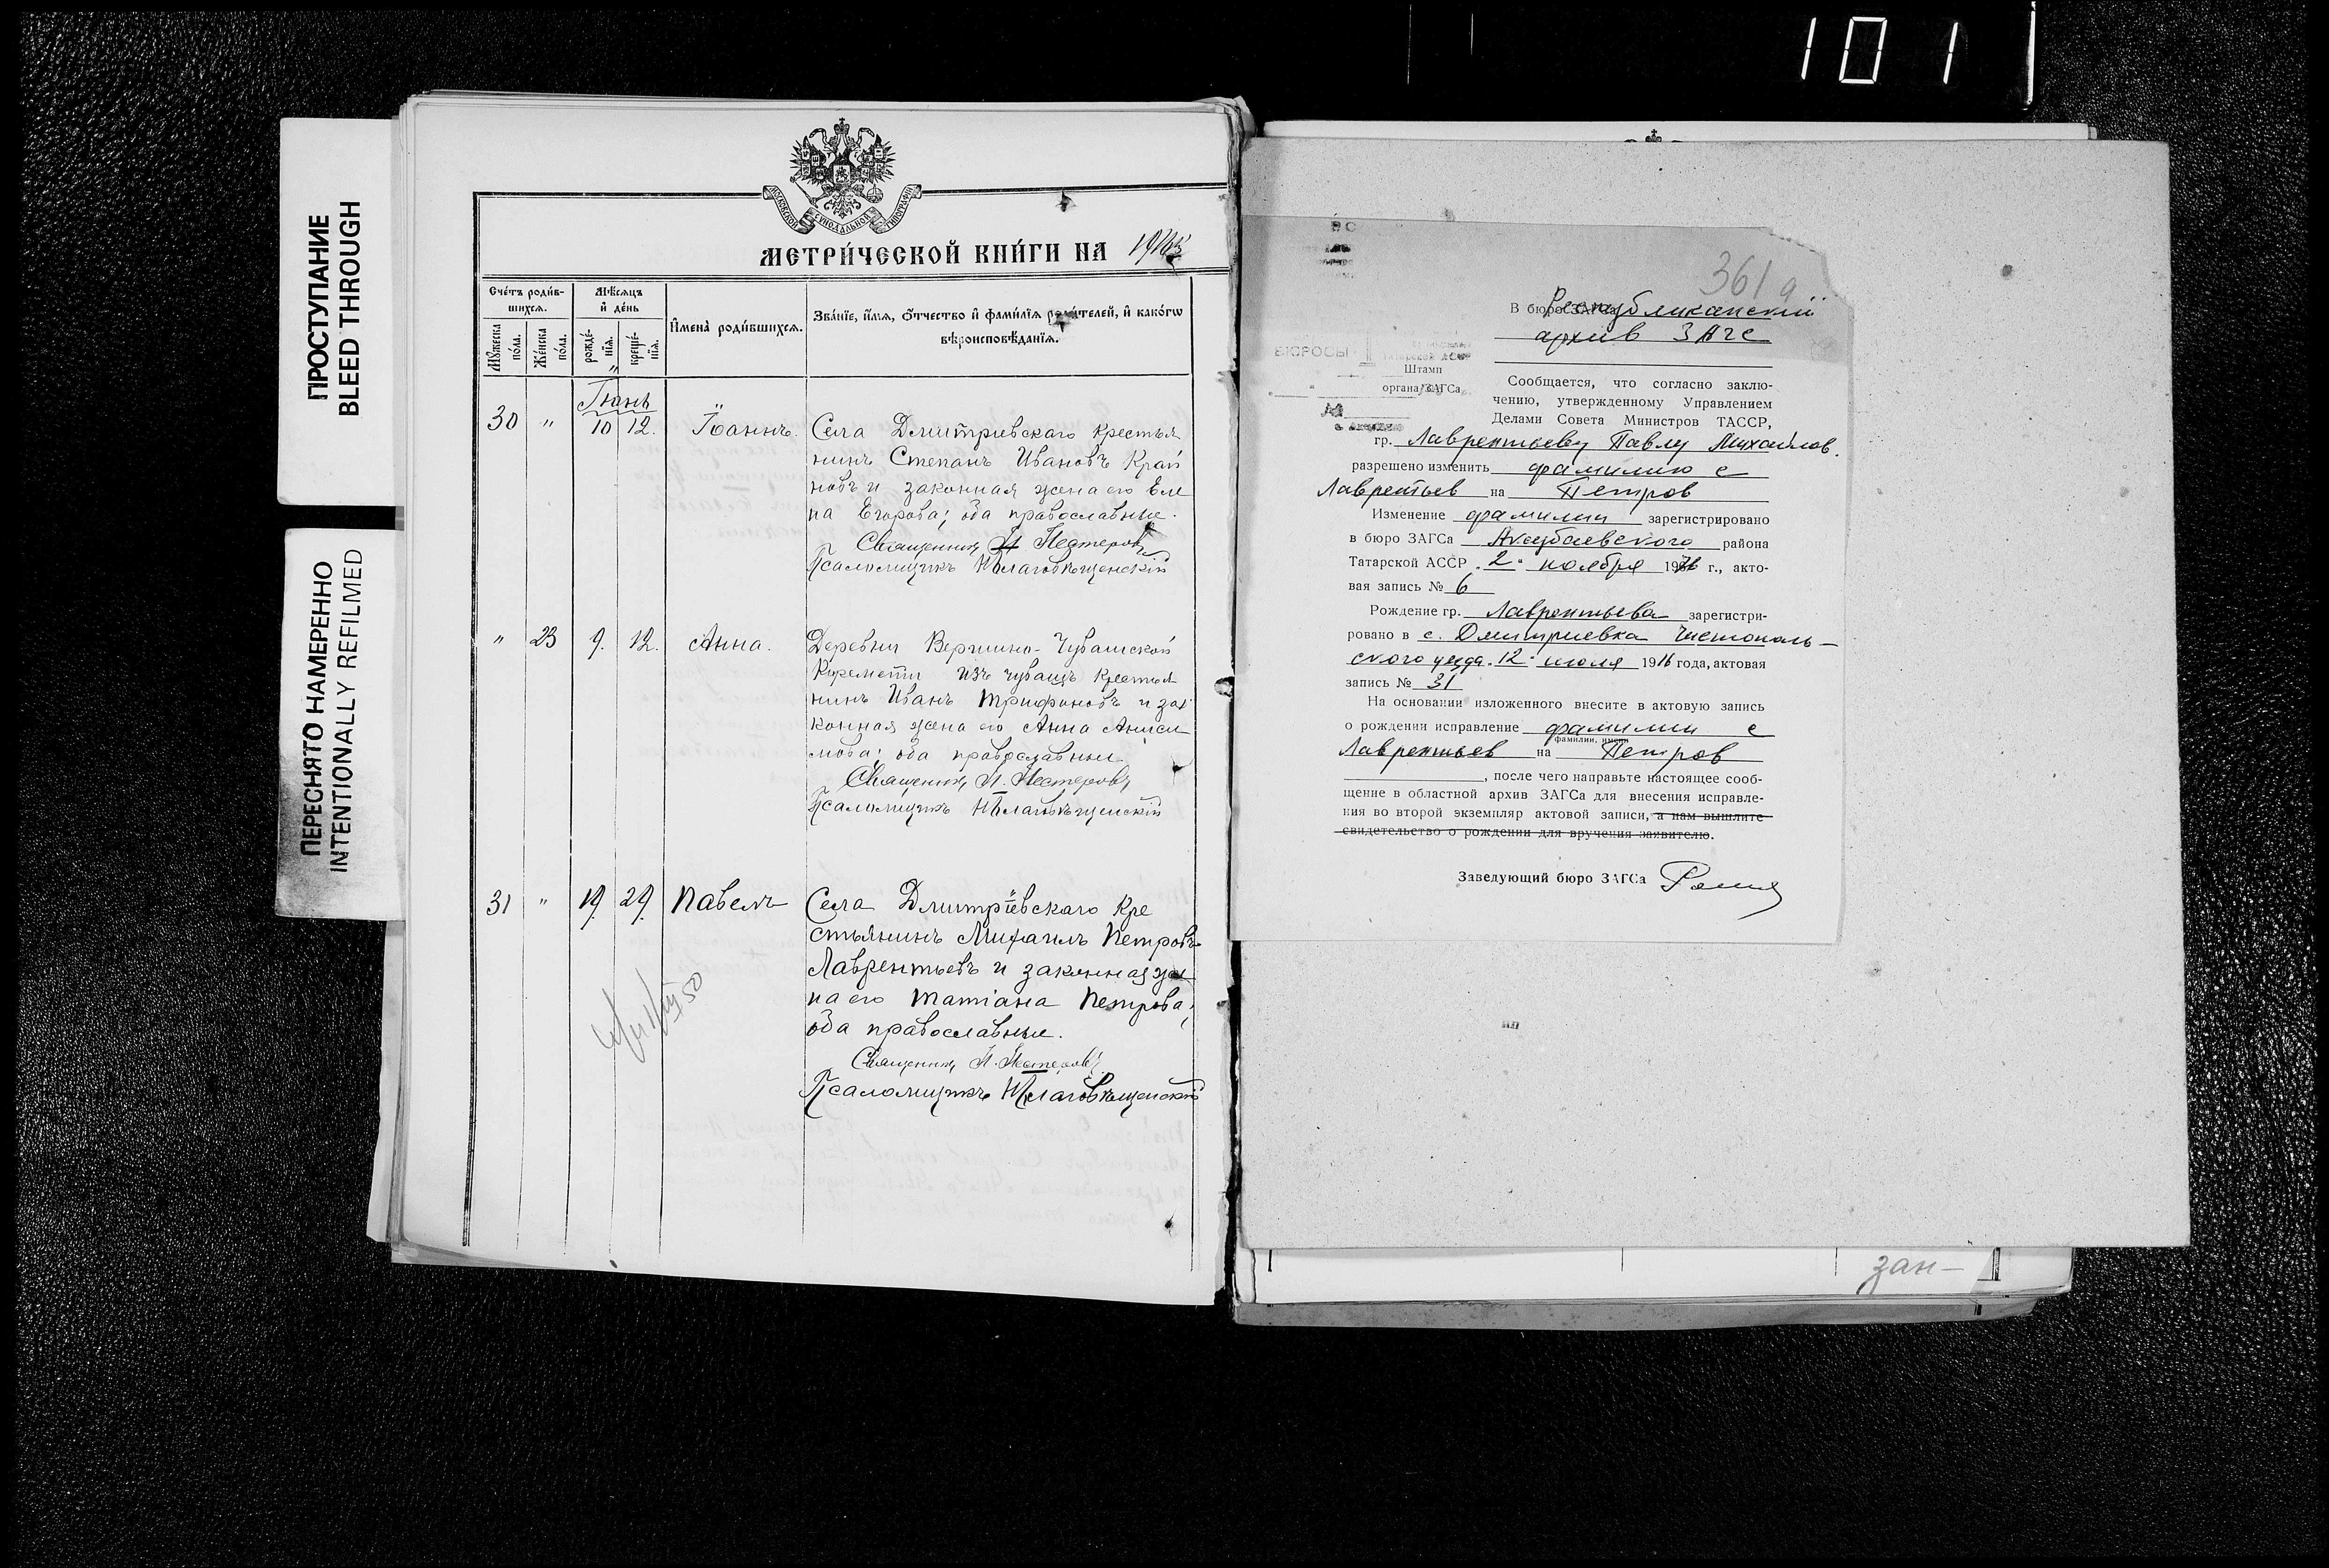 1011
ПРОСТУПАНИЕ
BLEED THROUGH
ПЕРЕСНЯТО НАМЕРЕННО
INTENTIONALLY REFILMED
МОСКОВСКОЙ СУНОДАЛЬНОЙ ТИПОГРАФІИ
МЕТРИ́ЧЕСКОЙ КНИ́ГИ НА
Сче́тъ роди́в-
шихся.
Мѣ́сяцъ
и҆ де́нь
И҆мена̀ роди́вшихся.
Зва́нїе, и҆́мя, ѻ҆́тчество и҆ фами́лїя роди́телей, и҆ како́гѡ
вѣроисповѣ́данїѧ.
Мꙋ́жеска
по́ла.
Же́нска
по́ла.
рожде́-
нїя.
креще́-
нїя.
Іюнь
30 " 10 12. Іоаннъ. Села Дмитриевскаго крестья
нинъ Степанъ Ивановъ Край
новъ и законная жена его Еле
на Егорова; оба православные.
Священникъ Н Нестеровъ
Псаломщикъ НБлаговѣщенскій
" 23 9. 12. Анна. Деревни Вершино-Чувашской
Киремети изъ чувашъ крестья
нинъ Иванъ Трифоновъ и зак
конная жена его Анна Аниси
мова; оба православные
Священникъ Н. Нестеровъ
Псаломщикъ НБлаговѣщенскій
31 " 19. 29. Павелъ Села Дмитріевскаго кре
стьянинъ Михаилъ Петровъ
Лаврентьевъ и законная же
на его Татіана Петрова;
оба православные.
Священникъ Н. Нестеровъ
Псаломщикъ НБлаговѣщенскій
361 а
В бюро ЗАГСа Республиканский
архив ЗАГС
БЮРОСЫ
Штамп
органа ЗАГСа
Сообщается, что согласно заклю-
чению, утвержденному Управлением
Делами Совета Министров ТАССР,
гр. Лаврентьеву Павлу Михайлов.
разрешено изменить фамилию с
Лаврентьев на Петров
Изменение фамилии зарегистрировано
в бюро ЗАГСа Аксубаевского района
Татарской АССР "2" ноября 1976 г., акто-
вая запись № 6
Рождение гр. Лаврентьева зарегистри-
ровано в с. Дмитриевка Чистополь-
ского уезда "12" июля 1916 года, актовая
запись № 31
На основании изложенного внесите в актовую запись
о рождении исправление фамилии с
фамилии, имени
Лаврентьев на Петров
, после чего направьте настоящее сооб-
щение в областной архив ЗАГСа для внесения исправле-
ния во второй экземпляр актовой записи, а нам вышлите
свидетельство о рождении для вручения заявителю.
Заведующий бюро ЗАГСа
зан-